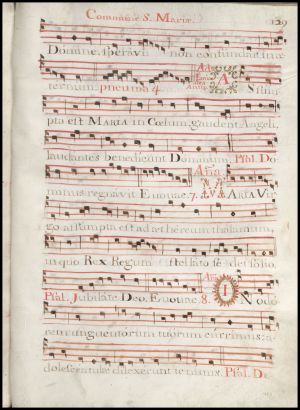 Commune S. Mariæ. 129
Domine, speravi non confundar in æ
ternum. pneuma 4. A Ssum
pta est MARIA in Cœlum, gaudent Angeli,
laudantes benedicunt Dominum. Psal. Do
minus regnavit. Euouae. 7. MARIA Vir
go assumpta est ad æthereum thalamum,
in quo Rex Regum stellato sedet solio.
Psal. Jubilate Deo. Euouae. 8. IN odo
rem unguentorum tuorum currimus: a
dolescentulæ dilexerunt te nimis. Psal. D